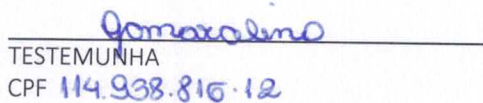 Gomaralino
TESTEMUNHA
CPF 114.938.816.12